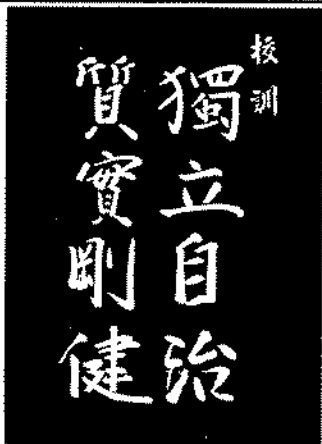 校訓
獨立自治
質實剛健